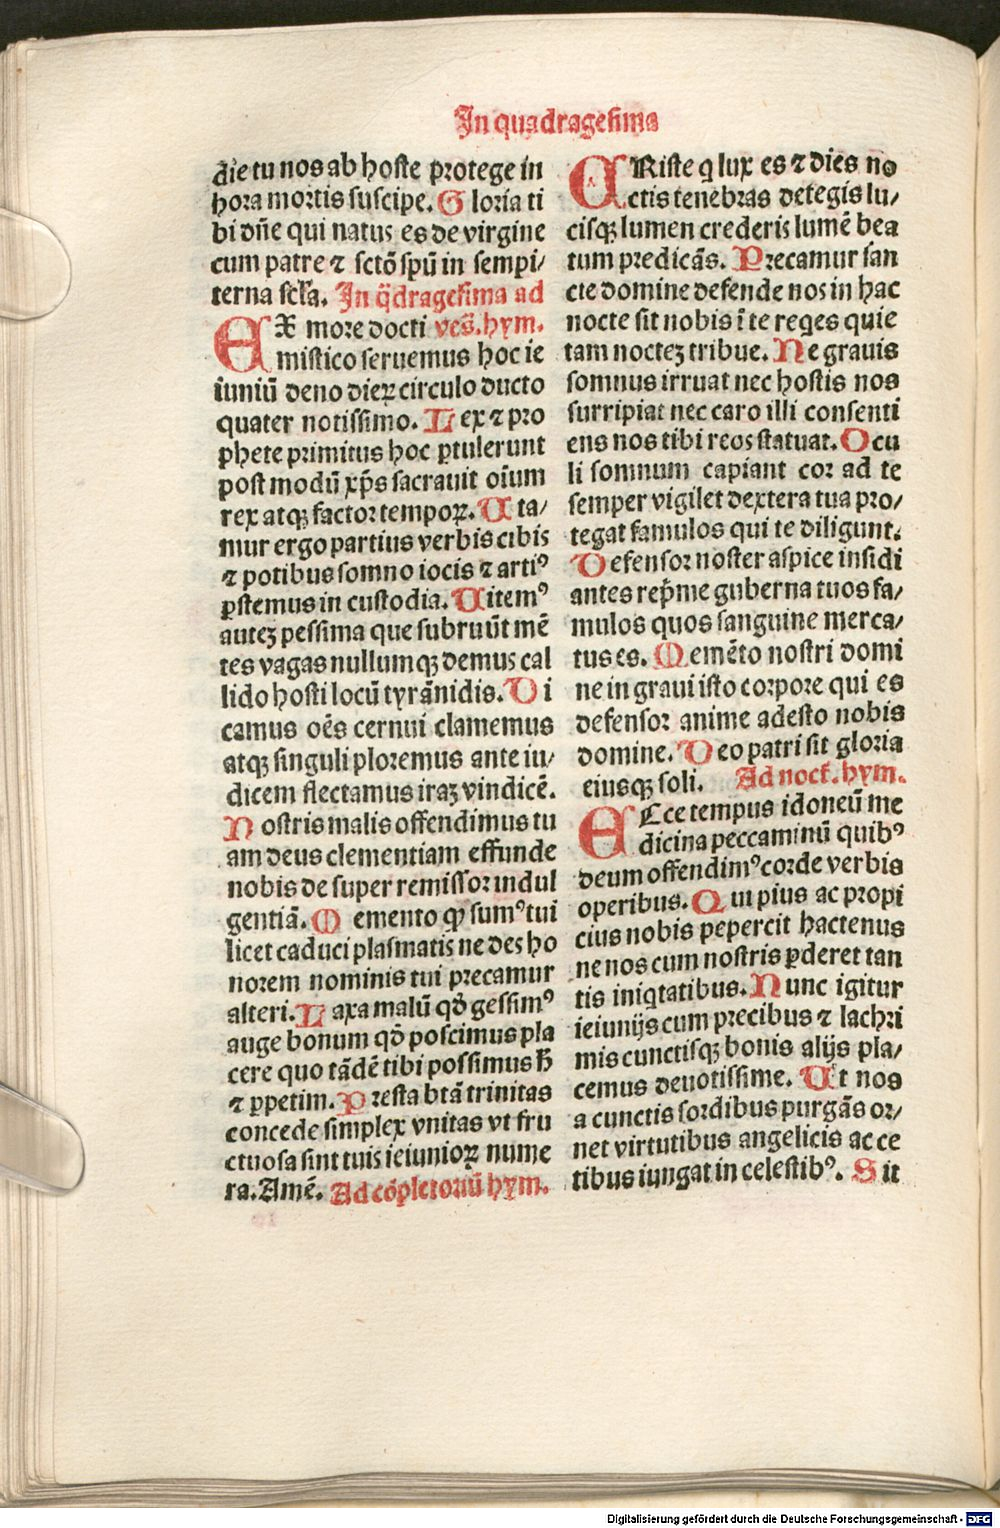 In quadragesima
ãie tu nos ab hoste protege in
hora mortis suscipe. Gloria ti
bi dñe qui natus es de virgine
cum patre ⁊ sctõ spũ in sempi/
terna scła. In q̃dragesima ad
EX more docti ves̃. hym.
mistico seruemus hoc ie
iuniũ deno dieꝝ circulo ducto
quater notissimo. Lex ⁊ pro
phete primitus hoc ꝑtulerunt
post modũ xp̃s sacrauit oĩum
rex atqꝫ factor tempoꝝ. Uta/
mur ergo partius verbis cibis
⁊ potibus somno iocis ⁊ artiꝰ
ꝑstemus in custodia. Uitemꝰ
auteꝫ pessima que subruũt mẽ
tes vagas nullumqꝫ demus cal
lido hosti locũ tyrãnidis. Di
camus oẽs cernui clamemus
atqꝫ singuli ploremus ante iu/
dicem flectamus iraꝫ vindicẽ.
Nostris malis offendimus tu
am deus clementiam effunde
nobis de super remissor indul
gentiã. Memento ꝙ sumꝰ tui
licet caduci plasmatis ne des ho
norem nominis tui precamur
alteri. Laxa malũ qd̃ gessimꝰ
auge bonum qd̃ poscimus pla
cere quo tãdẽ tibi possimus h̃
⁊ ꝑpetim. Presta btã trinitas
concede simplex vnitas vt fru
ctuosa sint tuis ieiunioꝝ mune
ra. Amẽ. Ad cõpletoriũ hym.
CRiste q lux es ⁊ dies no
ctis tenebras detegis lu/
cisqꝫ lumen crederis lumẽ bea
tum predicãs. Precamur san
cte domine defende nos in hac
nocte sit nobis ĩ te reqes quie
tam nocteꝫ tribue. Ne grauis
somnus irruat nec hostis nos
surripiat nec caro illi consenti
ens nos tibi reos statuat. Ocu
li somnum capiant cor ad te
semper vigilet dextera tua pro/
tegat famulos qui te diligunt.
Defensor noster aspice insidi
antes rep̃me guberna tuos fa/
mulos quos sanguine merca/
tus es. Memẽto nostri domi
ne in graui isto corpore qui es
defensor anime adesto nobis
domine. Deo patri sit gloria
eiusqꝫ soli. Ad noct̃. hym.
ECce tempus idoneũ me
dicina peccaminũ quibꝰ
deum offendimꝰ corde verbis
operibus. Qui pius ac propi
cius nobis pepercit hactenus
ne nos cum nostris ꝑderet tan
tis iniqtatibus. Nunc igitur
ieiunijs cum precibus ⁊ lachri
mis cunctisqꝫ bonis alijs pla/
cemus deuotissime. Ut nos
a cunctis sordibus purgãs or/
net virtutibus angelicis ac ce
tibus iungat in celestibꝰ. Sit
Digitalisierung gefördert durch die Deutsche Forschungsgemeinschaft - DFG